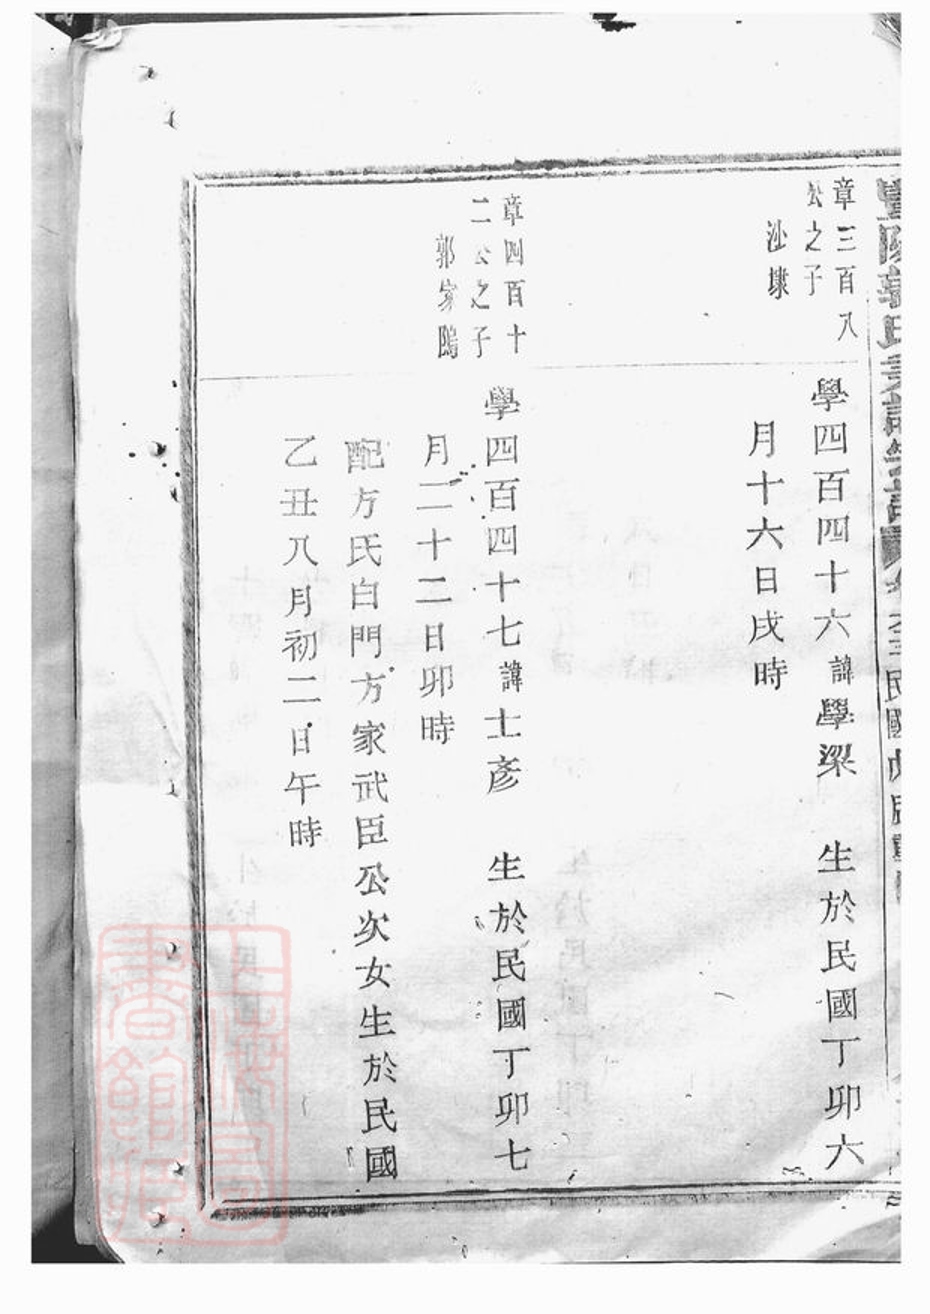 章三百八
公之子
沙埭
學四百四十六諱學梁 生於民國丁卯六
月十六日戌時
章四百十
二公之子
郭家鴟
學四百四十七諱士彥 生於民國丁卯七
月二十二日卯時
配方氏白門方家武臣公次女生於民國
乙丑八月初二日午時